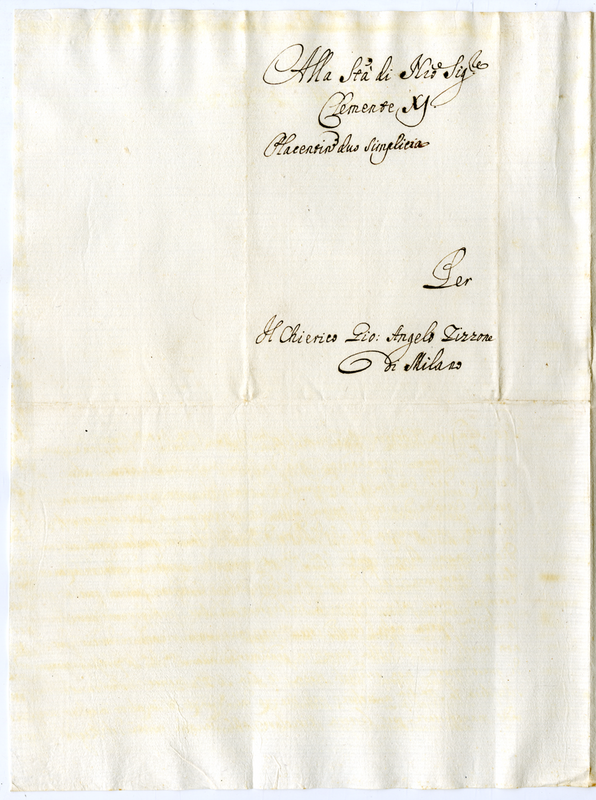 Alla Stà di Nro Sigre
Clemente XI.
Placentin duo simplicia
Per
Il Chierico Gio: Angelo Tizzone
di Milano